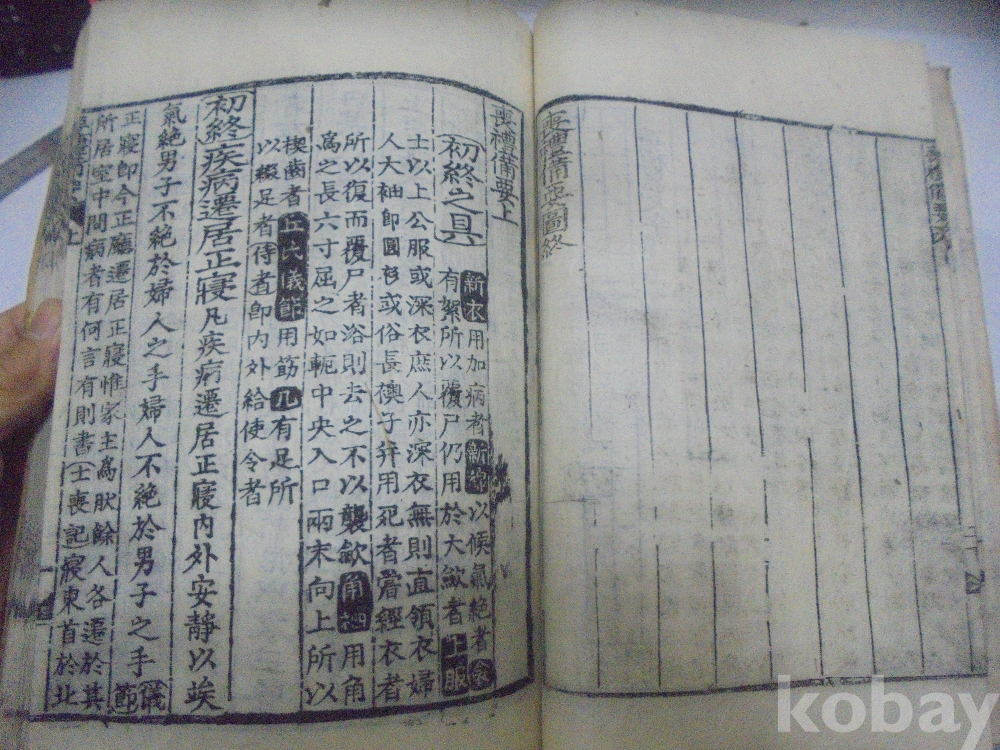 喪禮備要圖終
喪禮備要上
初終之具
新衣用加病者新綿以候氣絶者衾
有絮所以覆尸仍用於大斂者上服
士以上公服或深衣庶人亦深衣無則直領衣婦
人大袖卽圓衫或俗長襖子幷用死者嘗經衣者
所以復而覆尸者浴則去之不以襲斂角柶用角
爲之長六寸屈之如軛中央入口兩末向上所以
楔齒者丘氏儀節用筯几有足所
以綴足者侍者卽內外給使令者
初終疾病遷居正寢凡疾病遷居正寢內外安靜以俟
氣絶男子不絶於婦人之手婦人不絶於男子之手儀節
正寢卽今正廳遷居正寢惟家主爲肰餘人各遷於其
所居室中間病者有何言有則書士喪記寢東首於北
kobay